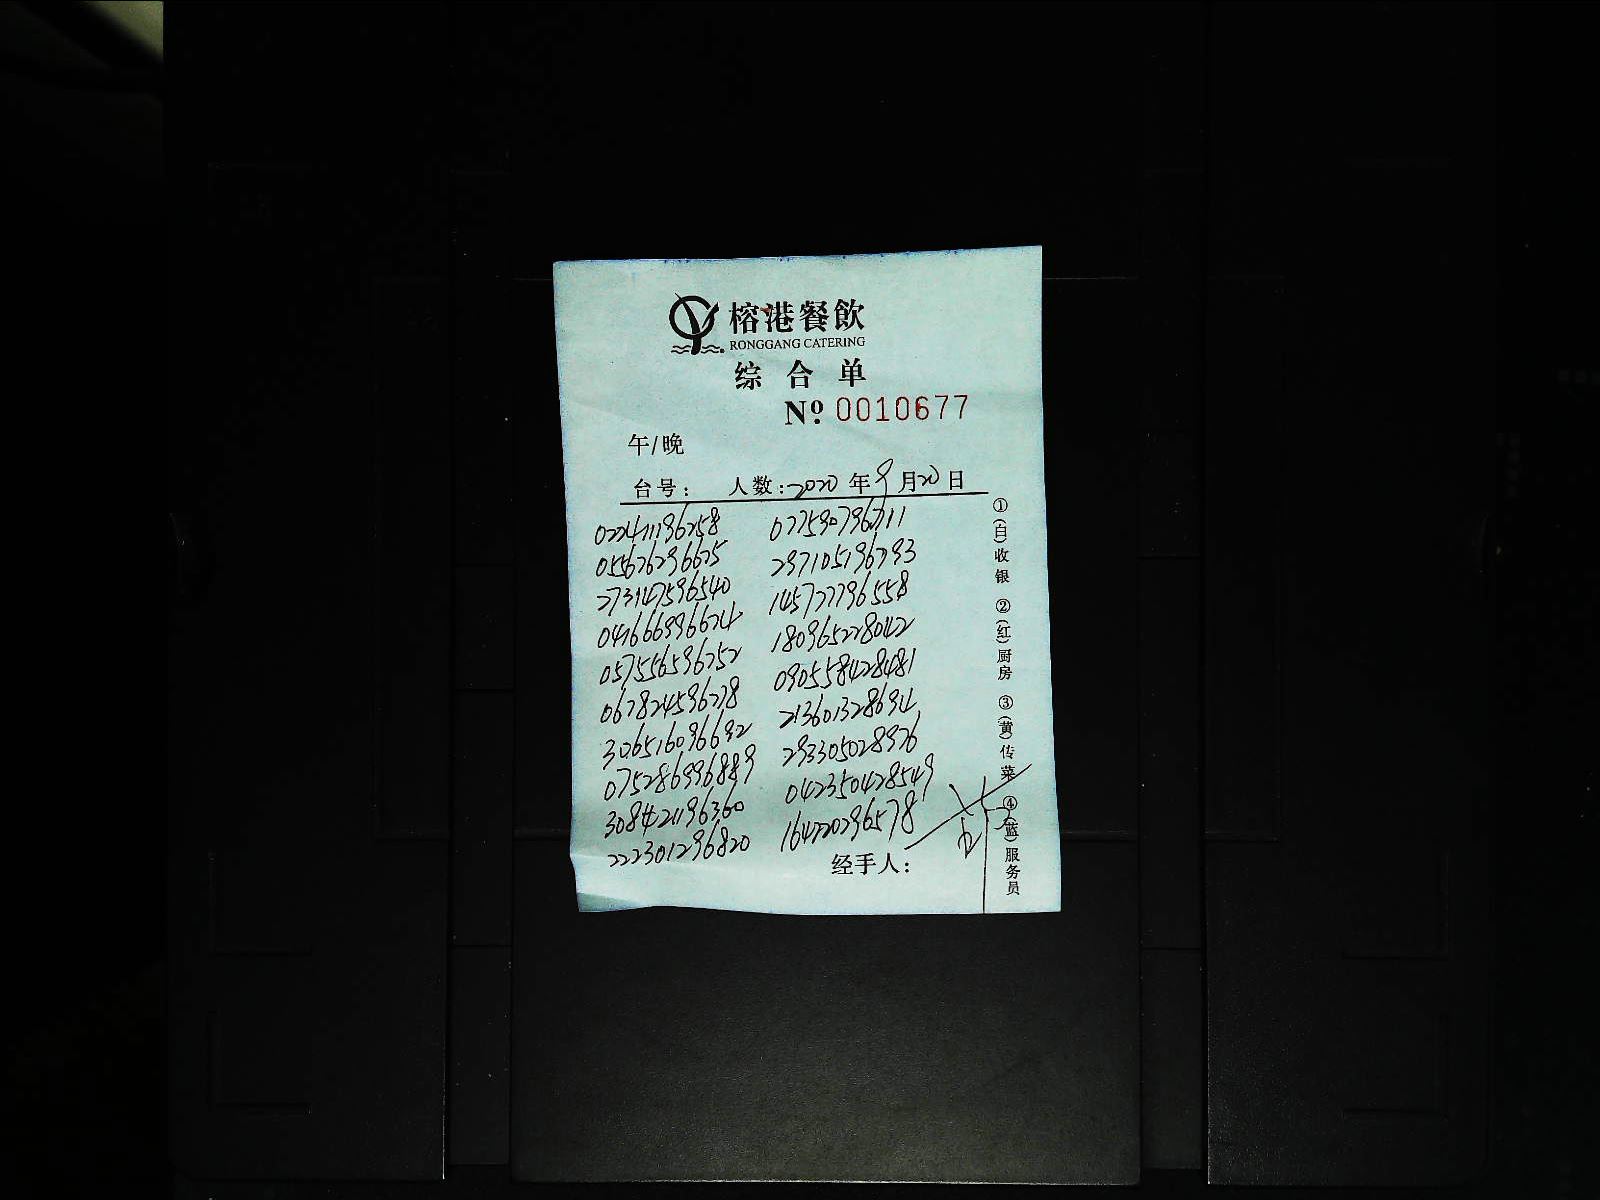 榕港餐飲
RONGGANG CATERING
综合单
№ 0010677
午/晚
台号： 人数：2020年9月20日
022471196258 077590796711
055626296625 297105196793
273147596540 145777796558
041666996624 180965228042
057556596252 090558428481
067824596278 213601328694
302651609 6692 293305028976
075286996889 042350428549
308421196360 164220296578
222301296820
经手人：
①(白)收银 ②(红)厨房 ③(黄)传菜 ④(蓝)服务员